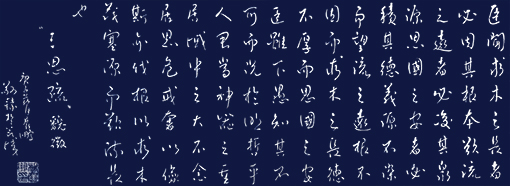 臣聞求木之長者
必固其根本欲流
之遠者必浚其泉
源思國之安者必
積其德義源不深
而望流之遠根不
固而求木之長德
不厚而思國之安
臣雖下愚知其不
可而況於明哲乎
人君當神器之重
居域中之大不念
居思危戒奢以儉
斯亦伐根以求木
茂塞源而欲流長
也
十思疏 魏徵